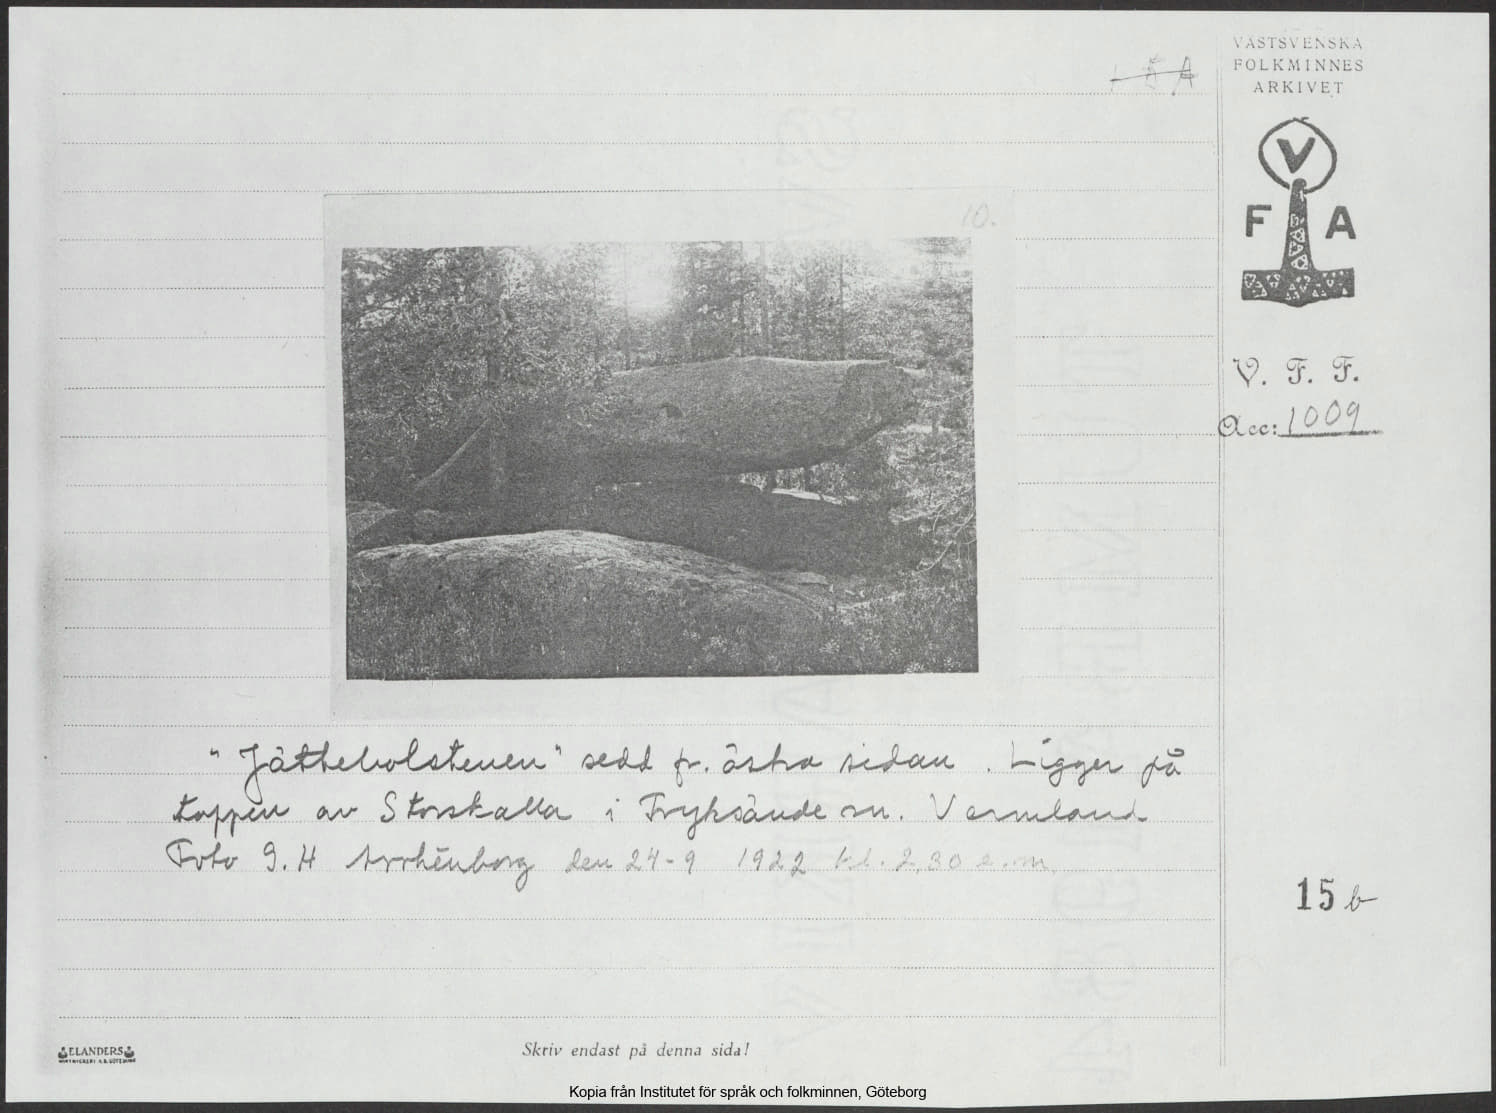 VÄSTSVENSKA
FOLKMINNES
ARKIVET
V
F A
10.
V. F. F.
Acc: 1009
"Jättebolstenen" sedd fr. östra sidan. Ligger på
toppen av Storskalla i Fryksände sn. Vermland
Foto G. H den 24-9 1922 kl. 2,30 e.m.
15 b
ELANDERS
Skriv endast på denna sida!
Kopia från Institutet för språk och folkminnen, Göteborg